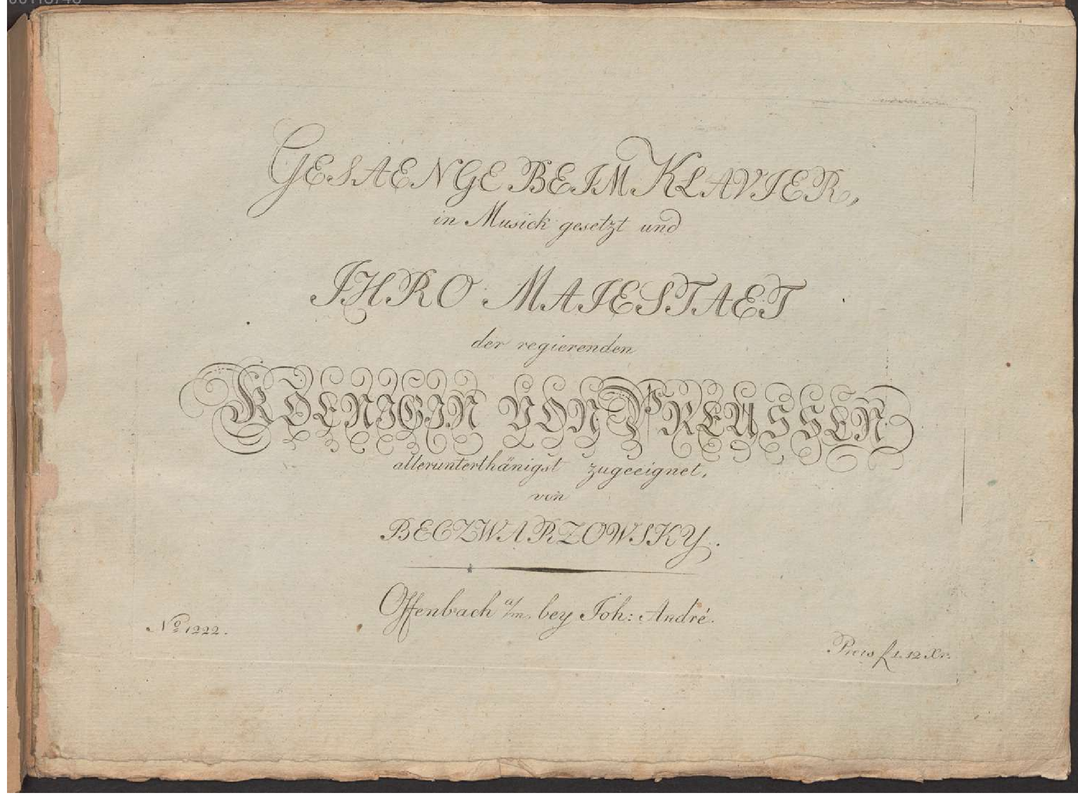 GESAENGE BEIM KLAVIER,
in Musick gesetzt und
IHRO MAJESTAET
der regierenden
KOENIGIN VON PREUSSEN
allerunterthänigst zugeeignet,
von
BECZWARZOWSKY.
Offenbach a/m. bey Joh: André.
No 1222.
Preis f 1.12 Xr.